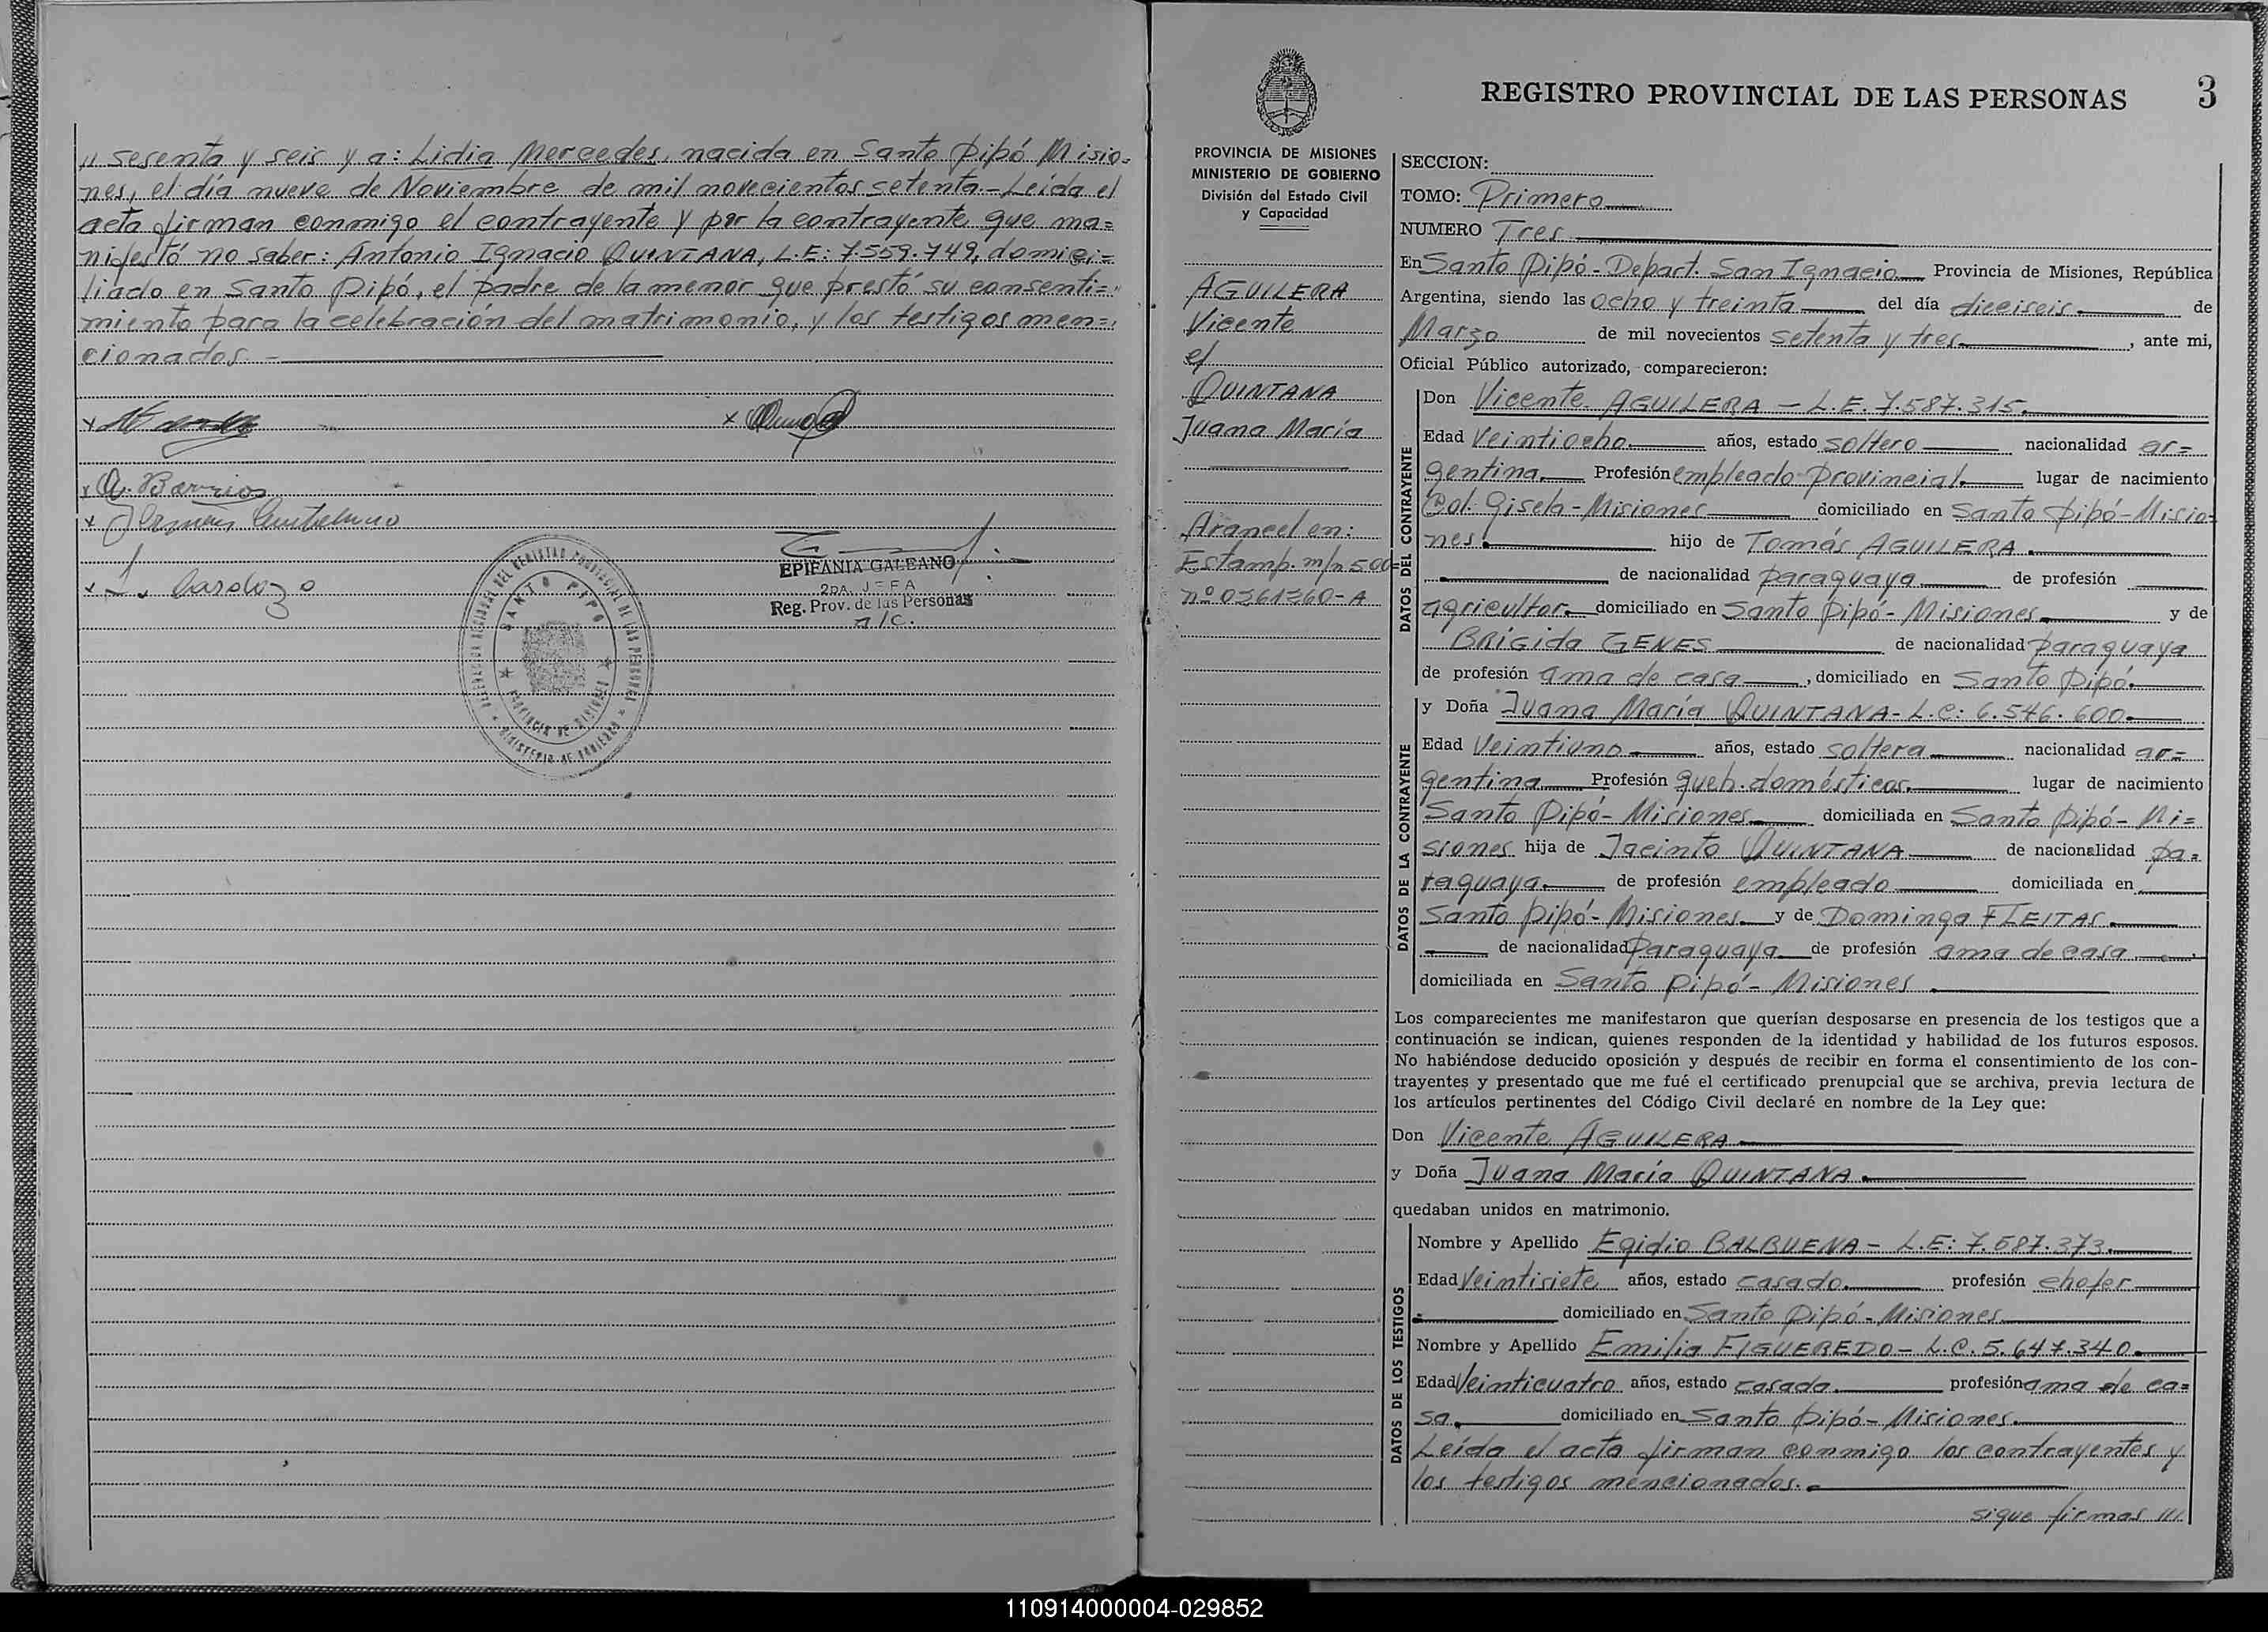 " sesenta y seis y a: Lidia Mercedes, nacida en Santo Pipó Misio-
nes, el día nueve de Noviembre de mil novecientos setenta.- Leída el
acta firman conmigo el contrayente y por la contrayente que ma=
nifestó no saber: Antonio Ignacio QUINTANA, L.E: 7.559.749, domici=
liado en Santo Pipó, el padre de la menor que prestó su consenti=
miento para la celebración del matrimonio, y los testigos men=
cionados.-
A. Barrios
L. Cardozo
EPIFANIA GALEANO
2DA. JEFA
Reg. Prov. de las Personas
a/c.
SANTO PIPO
PROVINCIA DE MISIONES
MINISTERIO DE GOBIERNO
REGISTRO PROVINCIAL DE LAS PERSONAS 3
PROVINCIA DE MISIONES
MINISTERIO DE GOBIERNO
División del Estado Civil
y Capacidad
AGUILERA
Vicente
c/
QUINTANA
Juana María
Arancel en:
Estamp. m/n 500=
nº 0261260-A
SECCION:
TOMO: Primero
NUMERO Tres
En Santo Pipó - Depart. San Ignacio Provincia de Misiones, República
Argentina, siendo las ocho y treinta del día dieciseis de
Marzo de mil novecientos setenta y tres, ante mi,
Oficial Público autorizado, comparecieron:
DATOS DEL CONTRAYENTE
Don Vicente AGUILERA - L.E. 7.587.315.
Edad Veintiocho años, estado soltero nacionalidad ar=
gentina Profesión empleado provincial lugar de nacimiento
Col. Gisela - Misiones domiciliado en Santo Pipó - Misio-
nes. hijo de Tomás AGUILERA.
de nacionalidad paraguaya de profesión
agricultor domiciliado en Santo Pipó - Misiones y de
BRÍGIDA GENES de nacionalidad paraguaya
de profesión ama de casa, domiciliado en Santo Pipó.
DATOS DE LA CONTRAYENTE
y Doña Juana María QUINTANA - L.C: 6.546.600
Edad Veintiuno años, estado soltera nacionalidad ar=
gentina Profesión queh. domésticos. lugar de nacimiento
Santo Pipó - Misiones domiciliada en Santo Pipó - Mi=
siones hija de Jacinto QUINTANA de nacionalidad pa=
raguaya de profesión empleado domiciliada en
Santo Pipó - Misiones y de Dominga FLEITAS
de nacionalidad Paraguaya de profesión ama de casa,
domiciliada en Santo Pipó - Misiones
Los comparecientes me manifestaron que querían desposarse en presencia de los testigos que a
continuación se indican, quienes responden de la identidad y habilidad de los futuros esposos.
No habiéndose deducido oposición y después de recibir en forma el consentimiento de los con-
trayentes y presentado que me fué el certificado prenupcial que se archiva, previa lectura de
los artículos pertinentes del Código Civil declaré en nombre de la Ley que:
Don Vicente AGUILERA
y Doña Juana María QUINTANA.
quedaban unidos en matrimonio.
DATOS DE LOS TESTIGOS
Nombre y Apellido Egidio BALBUENA - L.E: 7.587.373.
Edad Veintisiete años, estado casado. profesión chofer
domiciliado en Santo Pipó - Misiones
Nombre y Apellido Emilia FIGUEREDO - L.C. 5.647.340.
Edad Veinticuatro años, estado casada. profesión ama de ca=
sa. domiciliado en Santo Pipó - Misiones.
Leída el acta firman conmigo los contrayentes y
los testigos mencionados.
sigue firmas ///
110914000004-029852